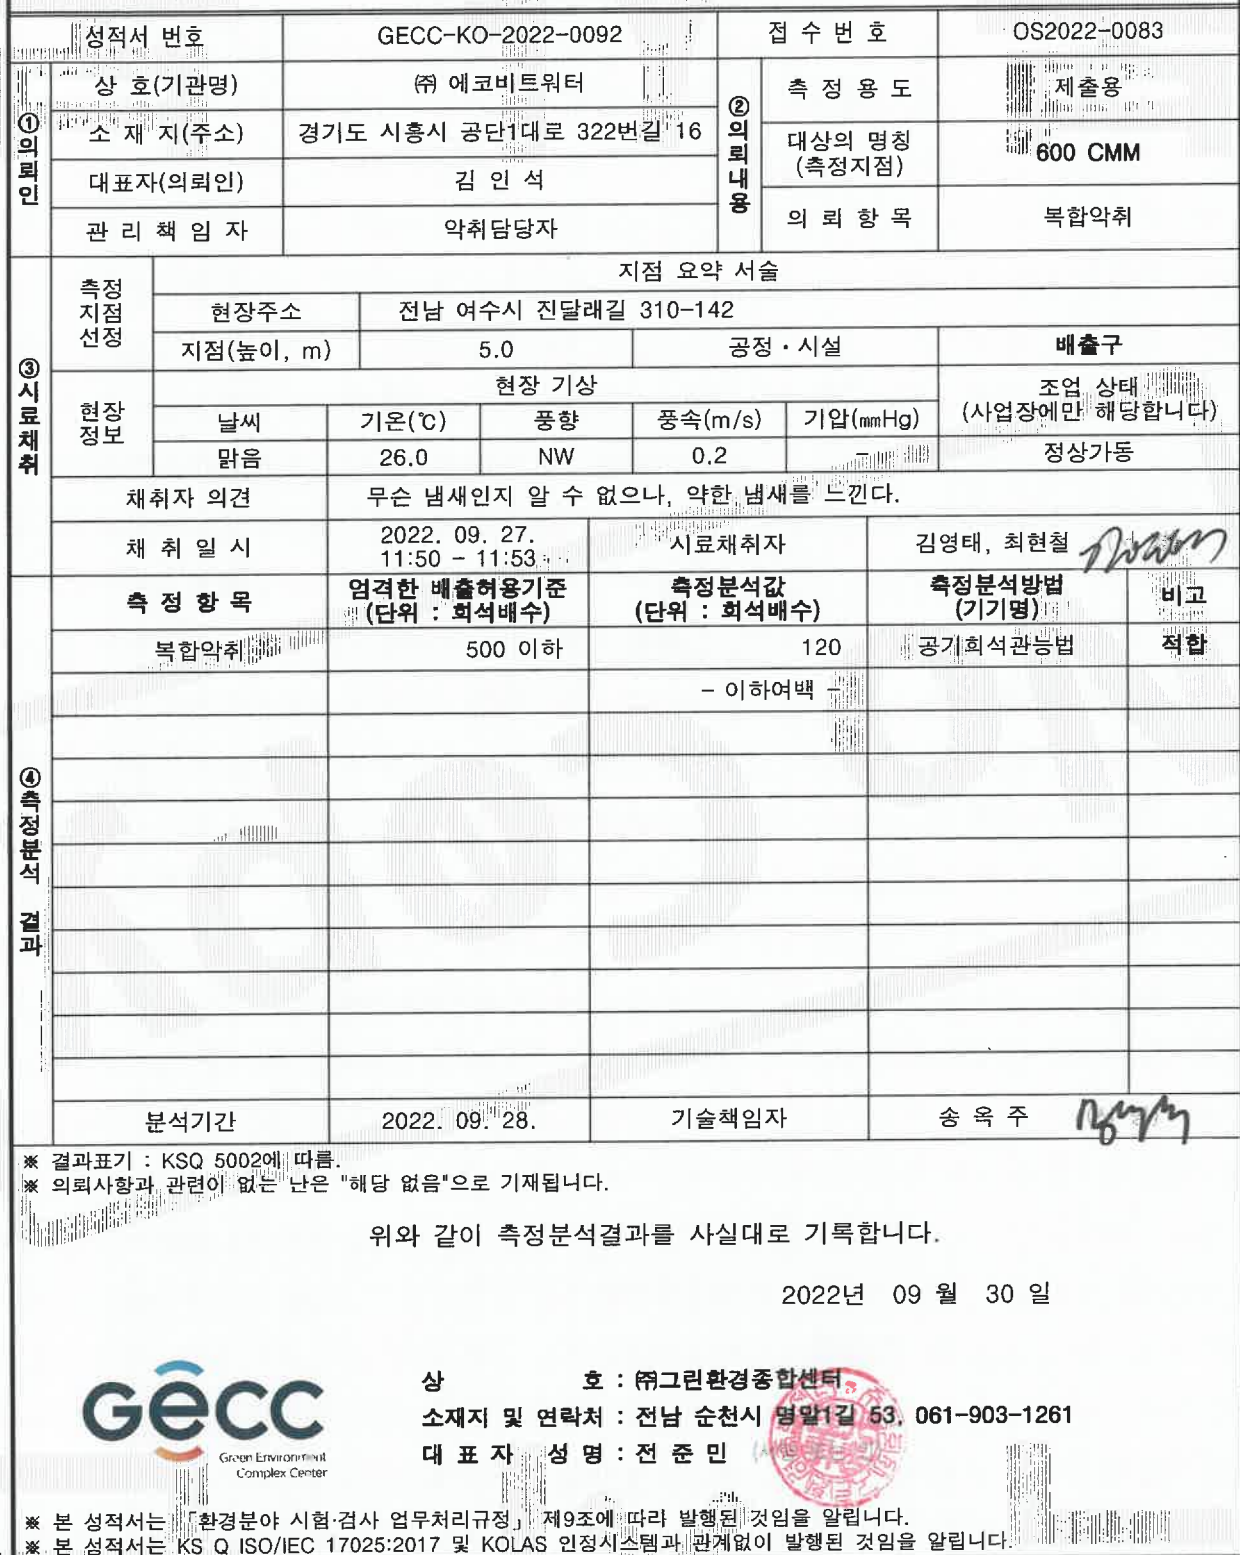 성적서 번호 GECC-KO-2022-0092 접 수 번 호 OS2022-0083
①의뢰인 상 호(기관명) ㈜ 에코비트워터 ②의뢰내용 측 정 용 도 제출용
소 재 지(주소) 경기도 시흥시 공단1대로 322번길 16 대상의 명칭 (측정지점) 600 CMM
대표자(의뢰인) 김 인 석 의 뢰 항 목 복합악취
관 리 책 임 자 악취담당자
③시료채취 측정 지점 선정 지점 요약 서술
현장주소 전남 여수시 진달래길 310-142
지점(높이, m) 5.0 공정·시설 배출구
현장 정보 현장 기상 조업 상태 (사업장에만 해당합니다)
날씨 기온(℃) 풍향 풍속(m/s) 기압(㎜Hg)
맑음 26.0 NW 0.2 - 정상가동
채취자 의견 무슨 냄새인지 알 수 없으나, 약한 냄새를 느낀다.
채 취 일 시 2022. 09. 27. 11:50 - 11:53 시료채취자 김영태, 최현철
④측정분석 결과 측 정 항 목 엄격한 배출허용기준 (단위 : 희석배수) 측정분석값 (단위 : 희석배수) 측정분석방법 (기기명) 비고
복합악취 500 이하 120 공기희석관능법 적합
- 이하여백 -
분석기간 2022. 09. 28. 기술책임자 송 옥 주
※ 결과표기 : KSQ 5002에 따름.
※ 의뢰사항과 관련이 없는 난은 "해당 없음"으로 기재됩니다.
위와 같이 측정분석결과를 사실대로 기록합니다.
2022년 09 월 30 일
GECC
Green Environment
Complex Center
상 호 : ㈜그린환경종합센터
소재지 및 연락처 : 전남 순천시 명말1길 53, 061-903-1261
대 표 자 성 명 : 전 준 민
※ 본 성적서는 「환경분야 시험·검사 업무처리규정」 제9조에 따라 발행된 것임을 알립니다.
※ 본 성적서는 KS Q ISO/IEC 17025:2017 및 KOLAS 인정시스템과 관계없이 발행된 것임을 알립니다.